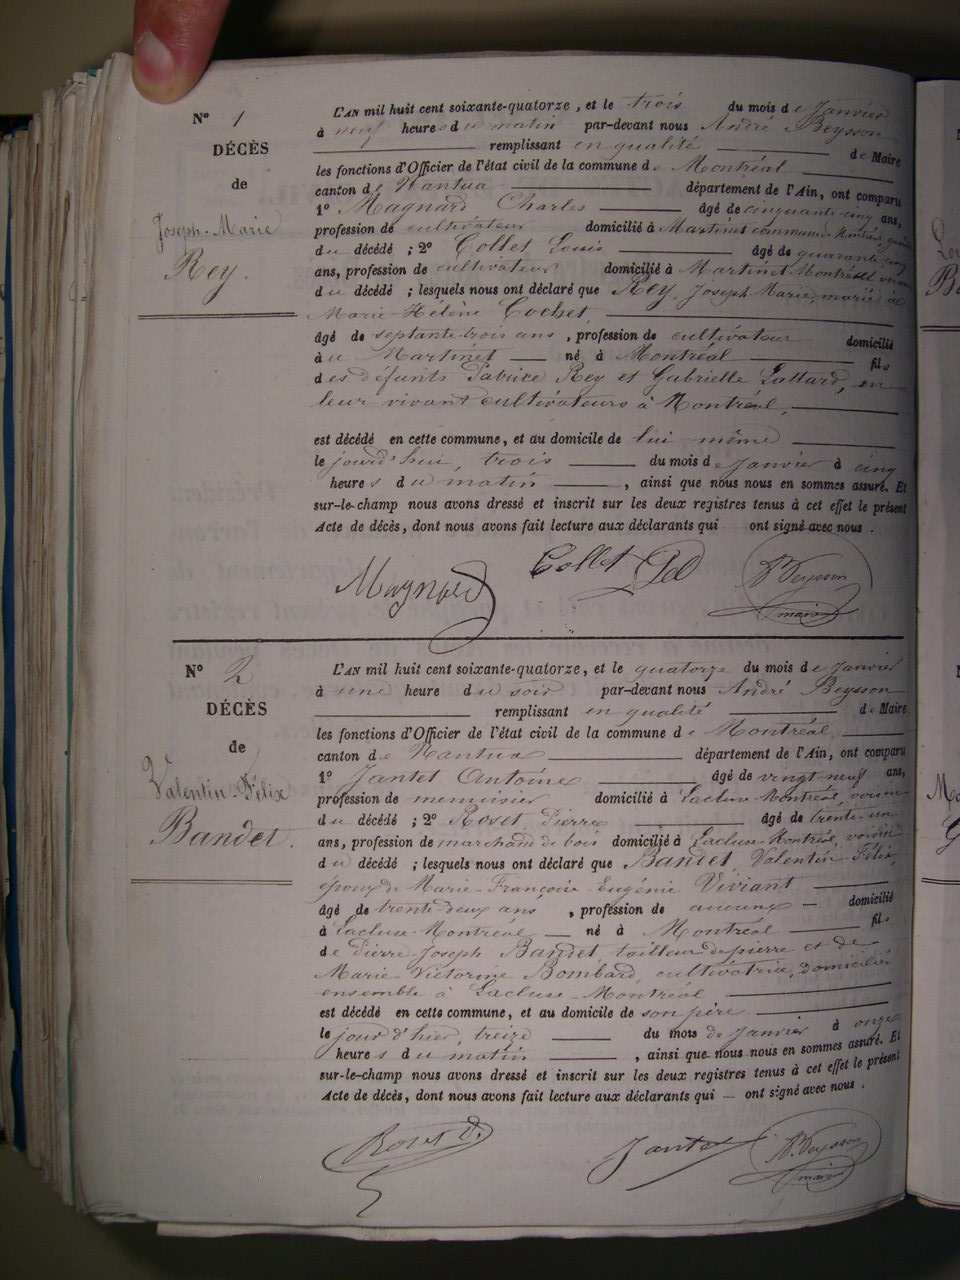 N° 1
DÉCÈS
de
Joseph-Marie
Rey.
L'AN mil huit cent soixante-quatorze, et le trois du mois de Janvier
à neuf heures du matin par-devant nous André Beysson
remplissant en qualité de Maire
les fonctions d'Officier de l'état civil de la commune de Montréal
canton de Nantua département de l'Ain, ont comparu
1° Magnard Charles âgé de cinquante-cinq ans,
profession de cultivateur domicilié à Martinet commune Montréal,
du décédé ; 2° Collet Louis âgé de quarante-cinq
ans, profession de cultivateur domicilié à Martinet Montréal voisin
du décédé ; lesquels nous ont déclaré que Rey, Joseph Marie, marié à
Marie-Hélène Cochet,
âgé de septante-trois ans, profession de cultivateur domicilié
à u Martinet né à Montréal fils
des défunts Patrice Rey et Gabrielle Lattard, en
leur vivant cultivateurs à Montréal,
est décédé en cette commune, et au domicile de lui même
le jourd'hui, trois du mois de Janvier à cinq
heures du matin, ainsi que nous nous en sommes assuré. Et
sur-le-champ nous avons dressé et inscrit sur les deux registres tenus à cet effet le présent
Acte de décès, dont nous avons fait lecture aux déclarants qui — ont signé avec nous.
Magnard Collet Beysson
maire
N° 2
DÉCÈS
de
Valentin-Félix
Bandet.
L'AN mil huit cent soixante-quatorze, et le quatorze du mois de Janvier
à une heure du soir par-devant nous André Beysson
remplissant en qualité de Maire
les fonctions d'Officier de l'état civil de la commune de Montréal,
canton de Nantua département de l'Ain, ont comparu
1° Jantet Antoine âgé de vingt-neuf ans,
profession de menuisier domicilié à Lacluse-Montréal, voisin
du décédé ; 2° Roset Pierre âgé de trente-un
ans, profession de marchand de bois domicilié à Lacluse-Montréal, voisin
du décédé ; lesquels nous ont déclaré que Bandet, Valentin Félix,
époux de Marie-Françoise-Eugénie Viviant
âgé de trente-deux ans, profession de aucune — domicilié
à Lacluse-Montréal né à Montréal fils
de Pierre-Joseph Bandet, tailleur de pierre et de
Marie-Victorine Bombard, cultivatrice, domiciliés
ensemble à Lacluse-Montréal,
est décédé en cette commune, et au domicile de son père
le jour d'hier, treize du mois de Janvier à onze
heures du matin, ainsi que nous nous en sommes assuré. Et
sur-le-champ nous avons dressé et inscrit sur les deux registres tenus à cet effet le présent
Acte de décès, dont nous avons fait lecture aux déclarants qui — ont signé avec nous.
Roset Jantet Beysson
maire